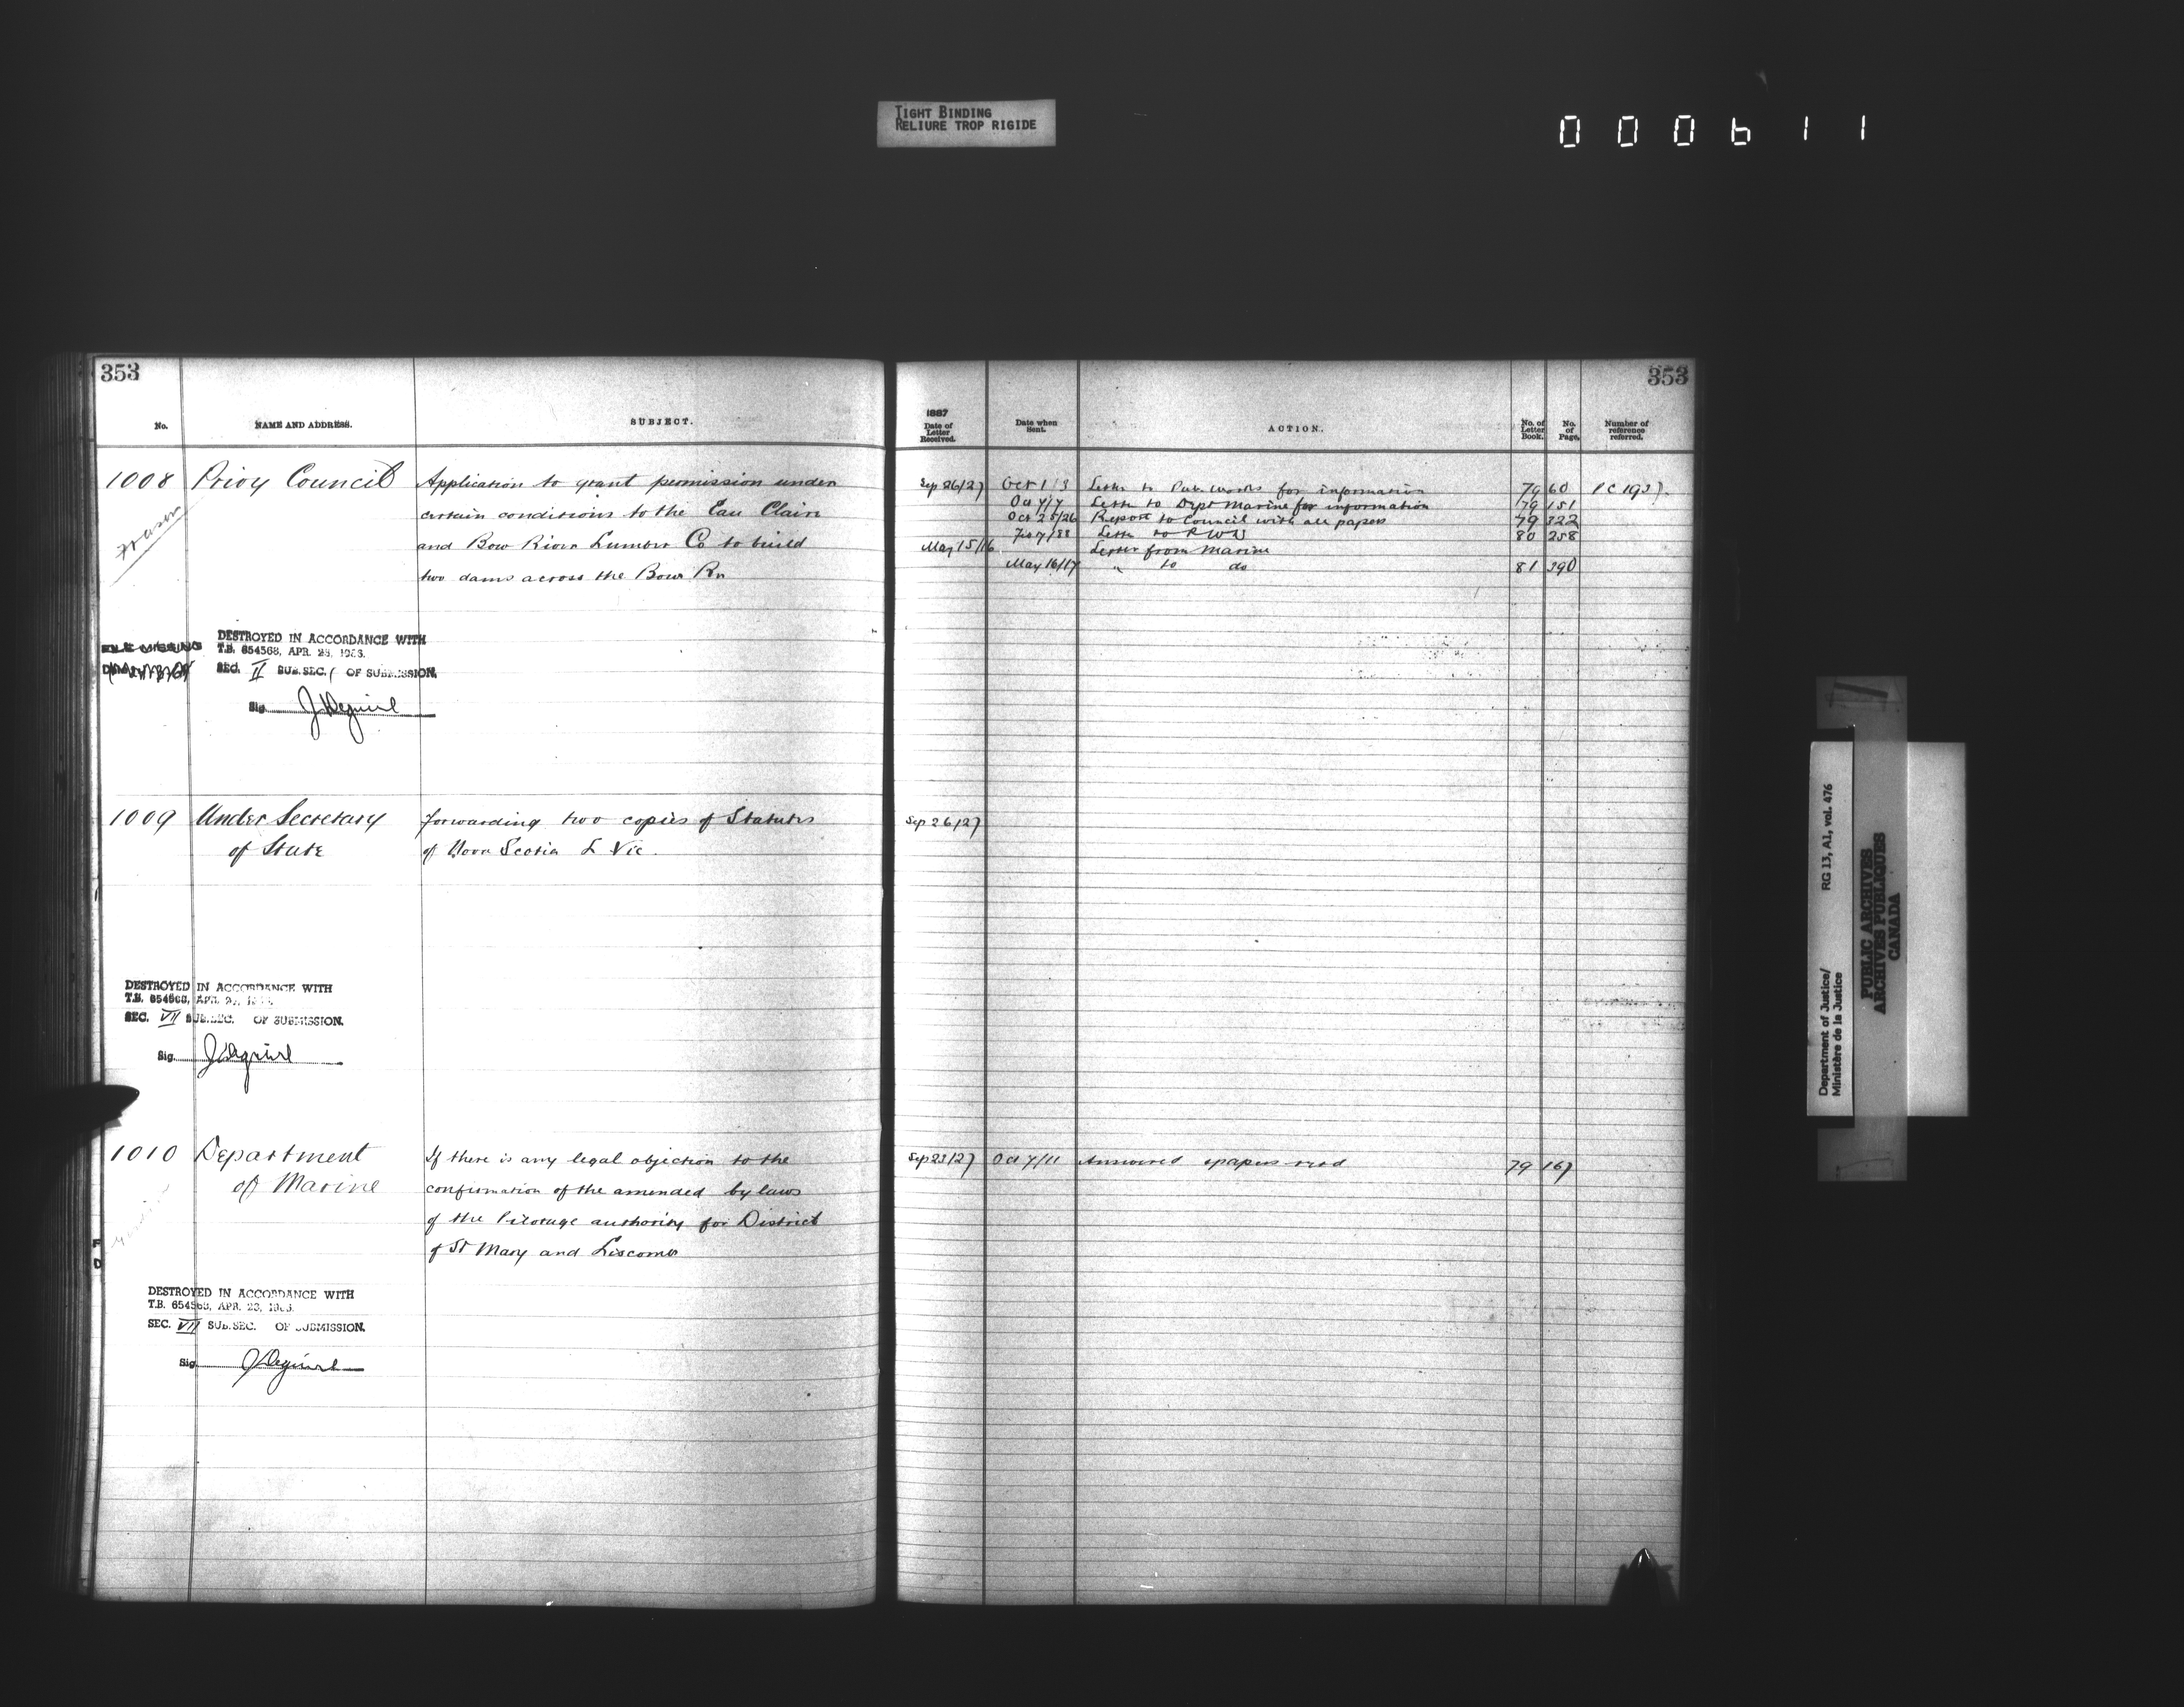 TIGHT BINDING
RELIURE TROP RIGIDE
000611
353
No.
NAME AND ADDRESS.
SUBJECT.
1008 Privy Council
Application to grant permission under
certain conditions to the Eau Claire
and Bow River Lumber Co to build
two dams across the Bow Rr
DESTROYED IN ACCORDANCE WITH
T.B. 654568, APR. 23, 1963.
SEC. II SUB.SEC. 1 OF SUBMISSION.
Sig.
1009 Under Secretary
of State
forwarding two copies of Statutes
of Nova Scotia L Vic.
DESTROYED IN ACCORDANCE WITH
T.B. 654568, APR.
SEC. VII SUB.SEC. OF SUBMISSION.
Sig.
1010 Department
of Marine
If there is any legal objection to the
confirmation of the amended by laws
of the Pilotage authority for District
of St Mary and Liscomb
DESTROYED IN ACCORDANCE WITH
T.B. 654568, APR. 23, 1963.
SEC. VII SUB.SEC. OF SUBMISSION.
Sig.
353
1887
Date of
Letter
Received.
Date when
Sent.
ACTION.
No. of
Letter
Book.
No.
of
Page.
Number of
reference
referred.
Sep 26/27 Oct 1/3 Letter to Pub. Works for information 79 60 PC 1937.
Oct 7/7 Letter to Dept Marine for information 79 151
Oct 25/26 Report to Council with all papers 79 322
Letter to 80 258
May 15/16 Letter from Marine
May 16/17 " to do 81 390
Sep 26/27
Sep 23/27 Oct 7/11 Answered 79 167
Department of Justice/ RG 13, A1, vol. 476
Ministère de la Justice
PUBLIC ARCHIVES
ARCHIVES PUBLIQUES
CANADA